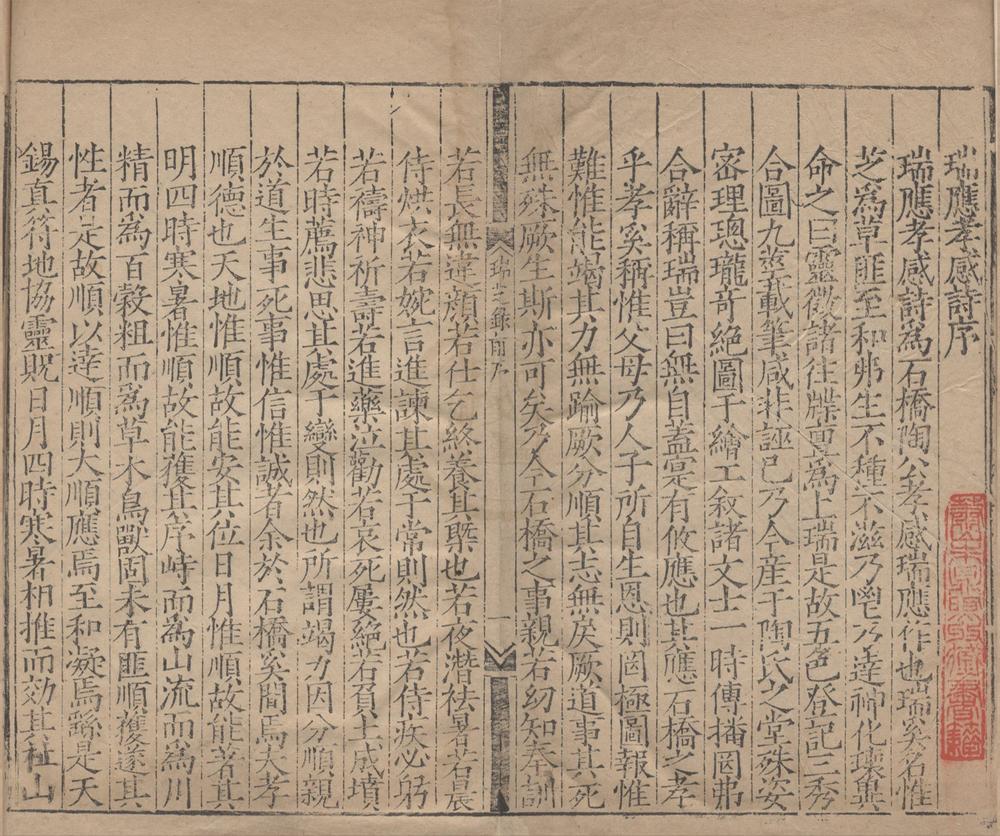 瑞應孝感詩序
瑞應孝感詩為石橋陶公孝感瑞應作也瑞奚名惟
芝為草匪至和弗生不種不滋乃鬯乃達神化瓌異
命之曰靈徵諸往牒亶為上瑞是故五色登記三秀
合圖九莖載筆咸非誣已乃今產于陶氏之堂殊姿
密理璁瓏奇絕圖于繪工敘諸文士一時傳播罔弗
合辭稱瑞豈曰無自蓋寔有攸應也其應石橋之孝
乎孝奚稱惟父母乃人子所自生恩則罔極圖報惟
難惟能竭其力無踰厥分順其志無戾厥道事其死
無殊厥生斯亦可矣乃今石橋之事親若幼知奉訓
瑞芝錄 前序 一
若長無違顏若仕乞終養其槩也若夜潛袪暑若晨
侍烘衣若婉言進諫其處于常則然也若侍疾必躬
若禱神祈壽若進藥泣勸若哀死屢絕若負土成墳
若時薦悲思其處于變則然也所謂竭力因分順親
於道生事死事惟信惟誠者余於石橋奚間焉夫孝
順德也天地惟順故能安其位日月惟順故能著其
明四時寒暑惟順故能獲其序峙而為山流而為川
精而為百穀粗而為草木鳥獸固未有匪順獲遂其
性者是故順以達順則大順應焉至和凝焉繇是天
錫真符地協靈貺日月四時寒暑相推而効其祉山